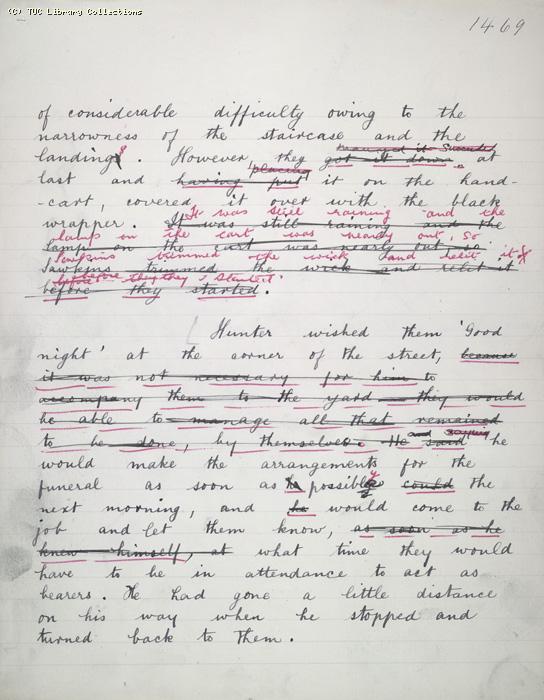 (C) TUC Library Collections
1469
of considerable difficulty owing to the
narrowness of the staircase and the
managed it Succeeded
landings. However they got it down at
placing
last and having put it on the hand-
-cart, covered it over with the black
It was still raining and the
wrapper. It was still raining and the
lamp in the cart was nearly out, so
lamp on the cart was nearly out so
Sawkins trimmed the wick and relit it
Sawkins trimmed the wick and relit it
before they started
before they started.
Hunter wished them 'Good
night' at the corner of the street, because
it was not necessary for him to
accompany them to the yard - they would
be able to manage all that remained
to be done, by themselves. He said he
and saying
would make the arrangements for the
funeral as soon as he possibly could the
next morning, and he would come to the
job and let them know, as soon as he
knew himself, at what time they would
have to be in attendance to act as
bearers. He had gone a little distance
on his way when he stopped and
turned back to them.